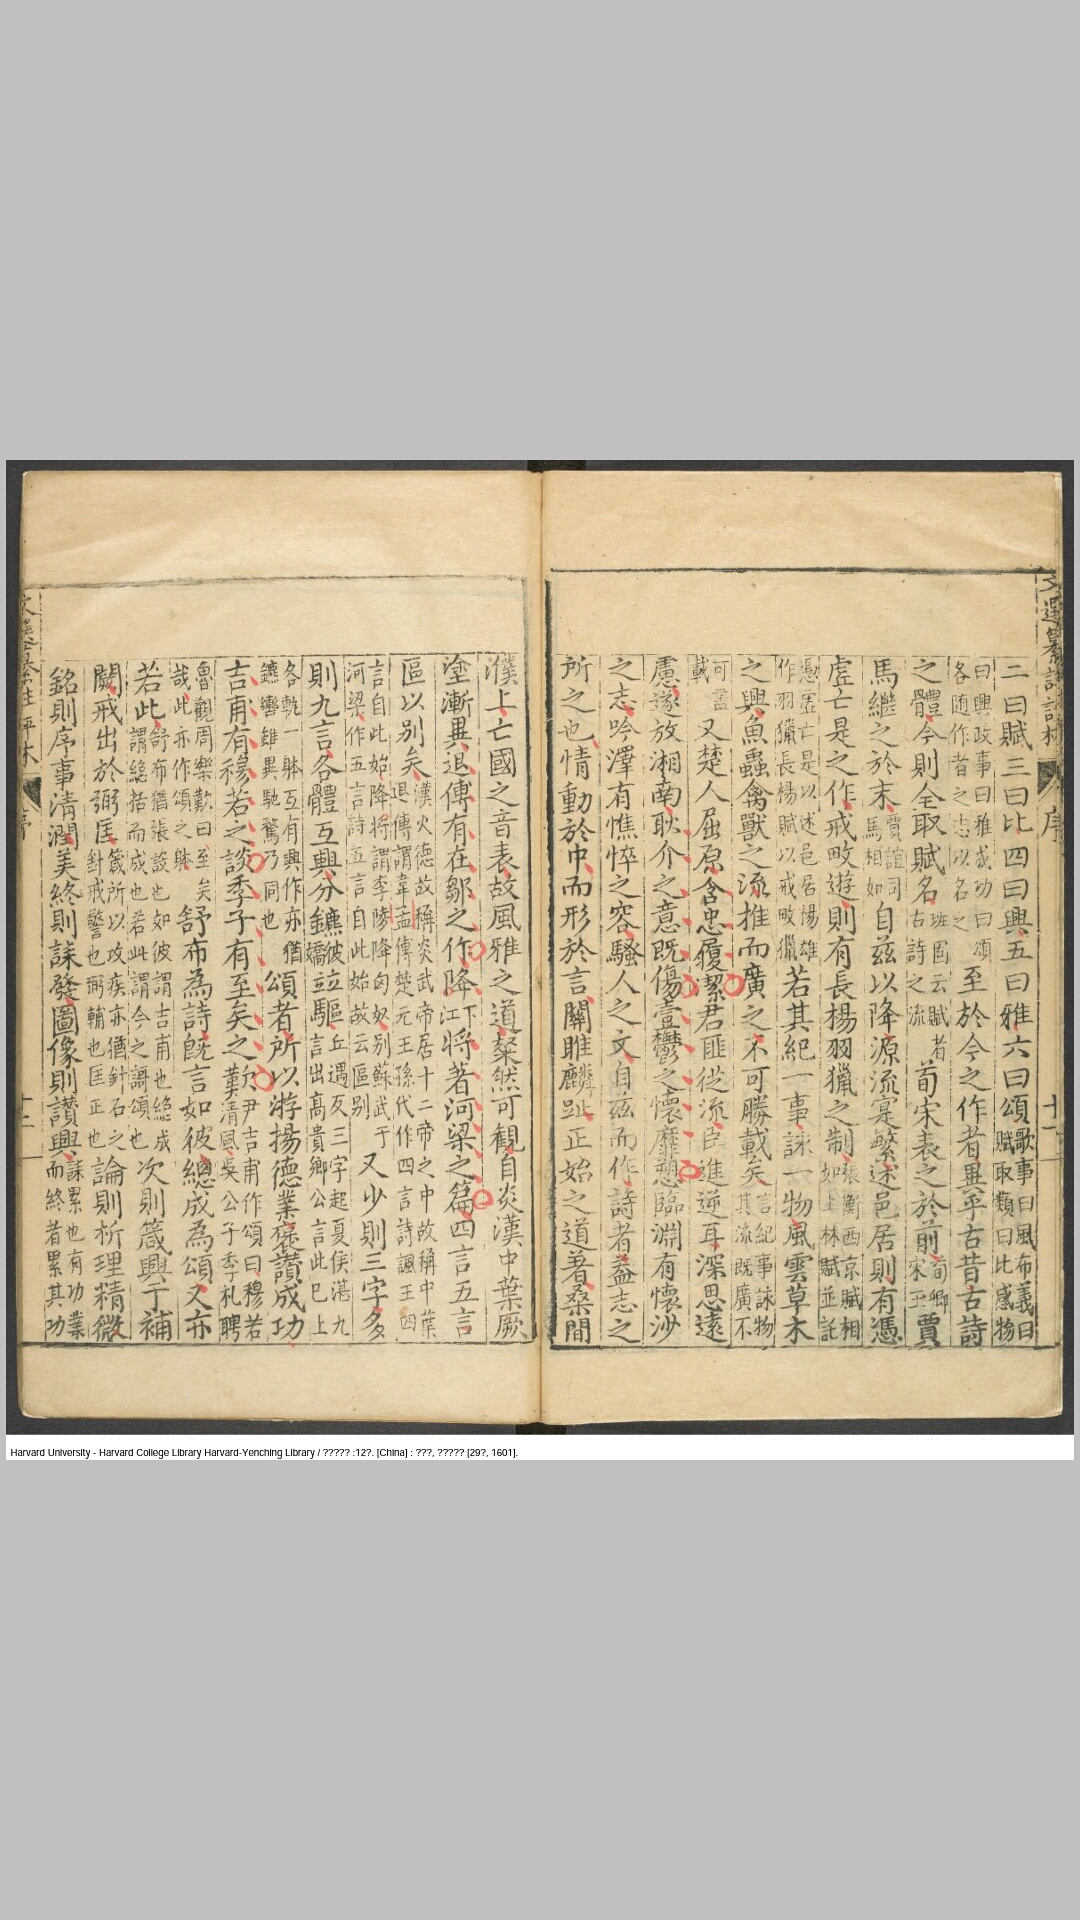 二曰賦三曰比四曰興五曰雅六曰頌歌事曰風布義曰賦取類曰比感物
曰興政事曰雅成功曰頌各随作者之志以名之至於今之作者異乎古昔古詩
之體今則全取賦名班固云賦者古詩之流荀宋表之於前荀卿宋玉賈
馬繼之於末賈誼司馬相如自兹以降源流寔繁述邑居則有憑
虛亡是之作戒畋遊則有長楊羽獵之制張衡西京賦相如上林賦並託
憑虛亡是以述邑居楊雄作羽獵長楊賦以戒畋獵若其紀一事詠一物風雲草木
之興魚蟲禽獸之流推而廣之不可勝載矣言紀事詠物其流既廣不
可盡載又楚人屈原含忠履潔君匪從流臣進逆耳深思遠
慮遂放湘南耿介之意既傷壹鬱之懷靡愬臨淵有懷沙
之志吟澤有憔悴之容騷人之文自茲而作詩者蓋志之
所之也情動於中而形於言關雎麟趾正始之道著桑間
濮上亡國之音表故風雅之道粲然可觀自炎漢中葉厥
塗漸異退傳有在鄒之作降江下將著河梁之篇四言五言
區以別矣漢火德故稱炎武帝居十二帝之中故稱中葉退傳謂韋孟傳楚元王孫代作四言詩諷王四
言自此始降將謂李陵降匈奴別蘇武于河梁作五言詩五言自此始故云區別又少則三字多
則九言各體互興分鑣並驅丘遲反三字起夏侯湛九言出高貴鄉公言此已上
各軌一躰互有興作亦猶鑣轡雖異馳騖乃同也頌者所以游揚德業褒讚成功
吉甫有穆若之談季子有至矣之歎尹吉甫作頌曰穆若清風吳公子季札聘
魯觀周樂歎曰至矣哉此亦作頌之躰舒布為詩旣言如彼總成為頌又亦
若此舒布猶張設也如彼謂吉甫也總成謂總括而成也若此謂今之謌頌也次則箴興于補
闕戒出於弼匡箴所以攻疾亦猶針石之針戒警也弼輔也匡正也論則析理精微
銘則序事清潤美終則誄發圖像則讃興誄累也有功業而終者累其功
序
Harvard University - Harvard College Library Harvard-Yenching Library / ????? :12?. [China] : ???, ????? [29?, 1601].